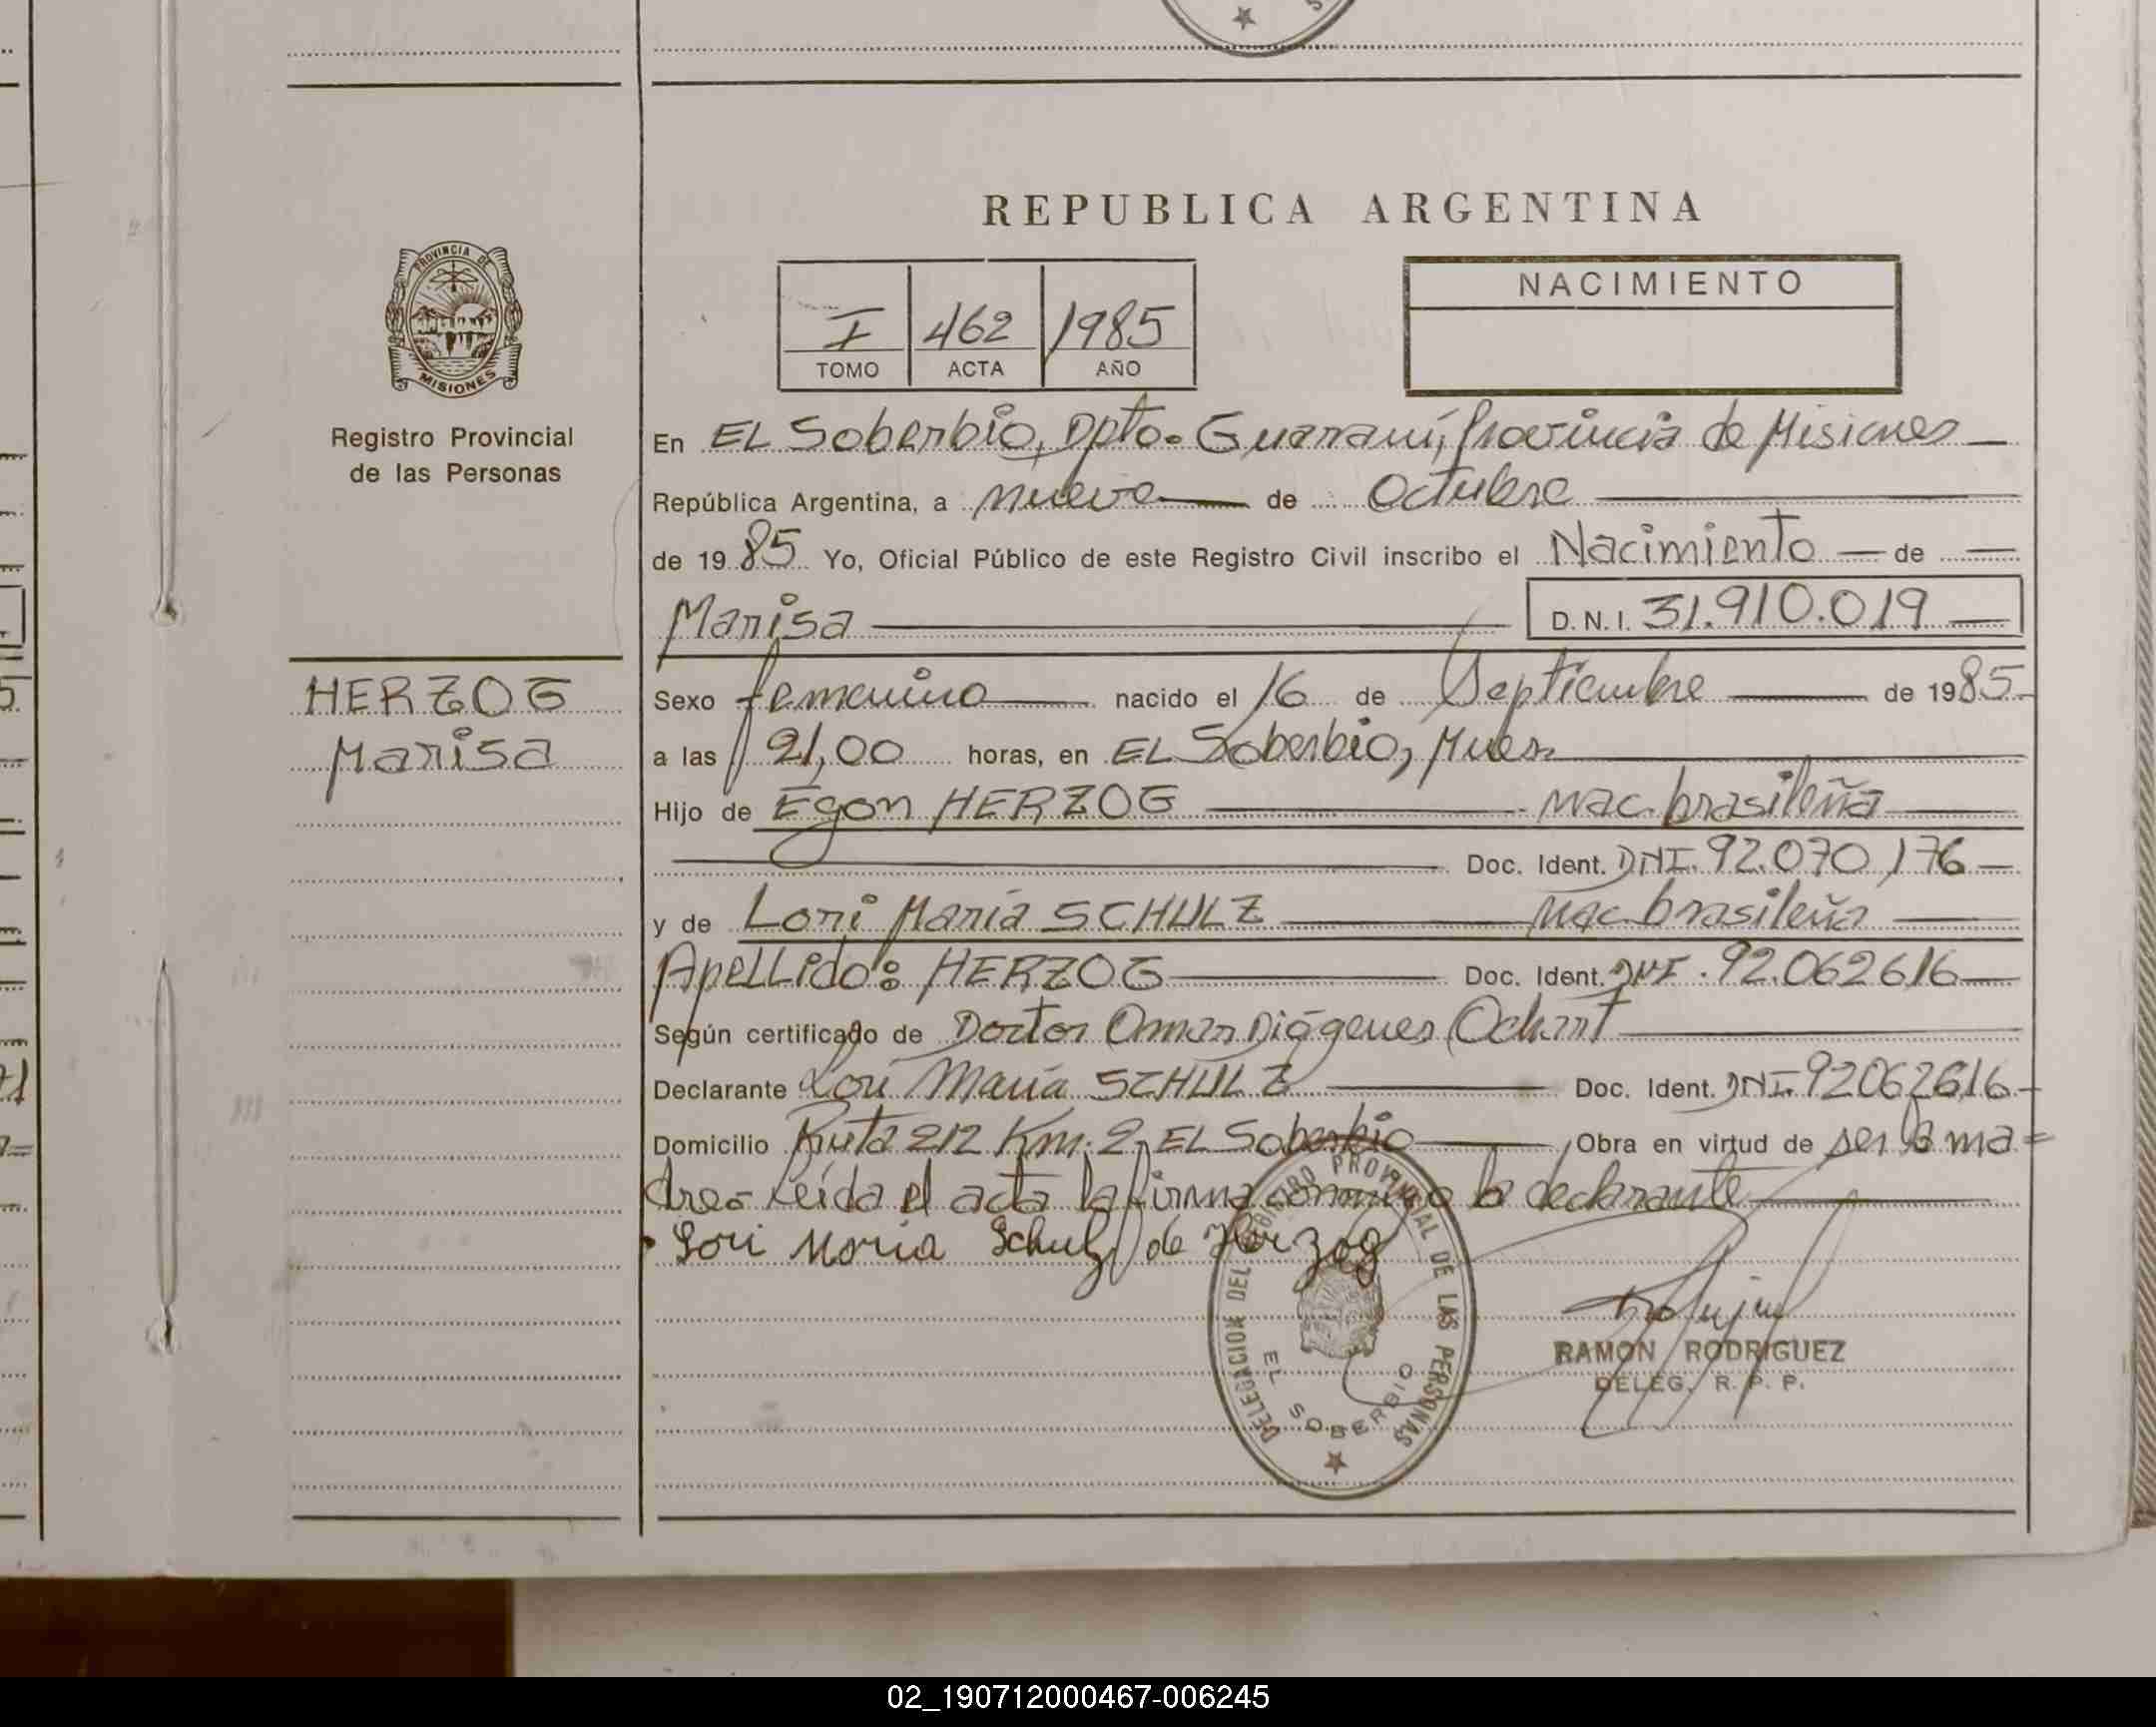 REPUBLICA ARGENTINA
PROVINCIA DE
MISIONES
Registro Provincial
de las Personas
I 462 1985
TOMO ACTA AÑO
NACIMIENTO
En EL Soberbio, Dpto. Guaraní, Provincia de Misiones
República Argentina, a nueve de Octubre
de 1985 Yo, Oficial Público de este Registro Civil inscribo el Nacimiento de
Marisa D.N.I. 31.910.019
HERZOG
Marisa
Sexo femenino nacido el 16 de Septiembre de 1985
a las 21,00 horas, en EL Soberbio, Mnes.
Hijo de Egon HERZOG nac. brasileña
Doc. Ident. DNI. 92.070.176
y de Lori María SCHULZ nac. brasileña
Apellido: HERZOG Doc. Ident. DNI. 92.062616
Según certificado de Doctor Omar Diógenes
Declarante Lori María SCHULZ Doc. Ident. DNI. 92062616
Domicilio Ruta 212 Km. 2, EL Soberbio Obra en virtud de ser la ma=
dre.- Leída el acta la firma conmigo la declarante
Lori Maria Schulz de Herzog
DELEGACION DEL REGISTRO PROVINCIAL DE LAS PERSONAS
EL SOBERBIO
RAMON RODRIGUEZ
DELEG. R. P. P.
02_190712000467-006245